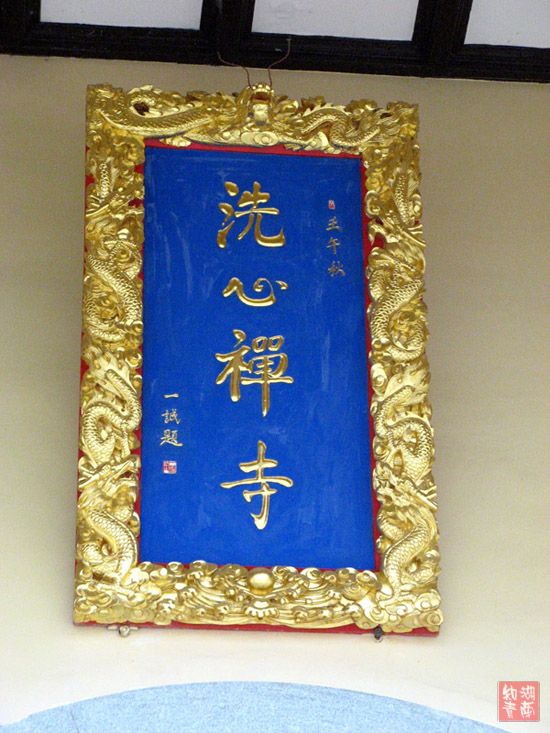 壬午秋
洗心禪寺
一誠題
湖南
知青